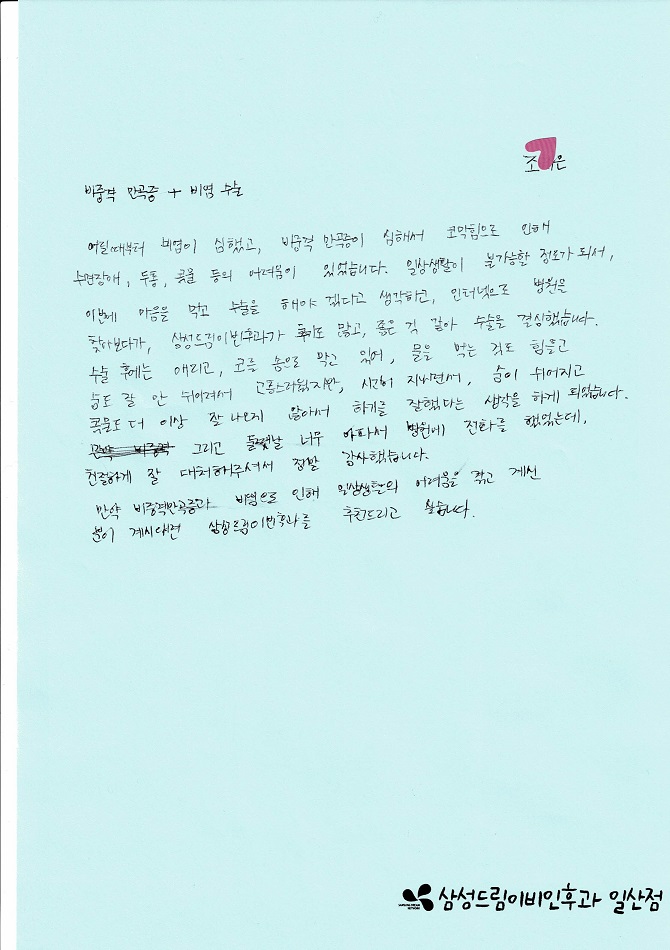 조 은
비중격 만곡증 + 비염 수술
어릴때부터 비염이 심했고, 비중격 만곡증이 심해서 코막힘으로 인해
수면장애, 두통, 콧물 등의 어려움이 있었습니다. 일상생활이 불가능할 정도가 되서,
이번에 마음을 먹고 수술을 해야 겠다고 생각하고, 인터넷으로 병원을
찾아보다가, 삼성드림이비인후과가 후기도 많고, 좋은 것 같아 수술을 결심했습니다.
수술 후에는 애리고, 코를 솜으로 막고 있어, 물을 먹는 것도 힘들고
숨도 잘 안 쉬어져서 고통스러웠지만, 시간이 지나면서, 숨이 쉬어지고
콧물도 더 이상 잘 나오지 않아서 하기를 잘했다는 생각을 하게 되었습니다.
그리고 둘쨋날 너무 아파서 병원에 전화를 했었는데,
친절하게 잘 대처해주셔서 정말 감사했습니다.
만약 비중격만곡증과 비염으로 인해 일상생활의 어려움을 겪고 계신
분이 계시다면 삼성드림이비인후과를 추천드리고 싶습니다.
삼성드림이비인후과 일산점